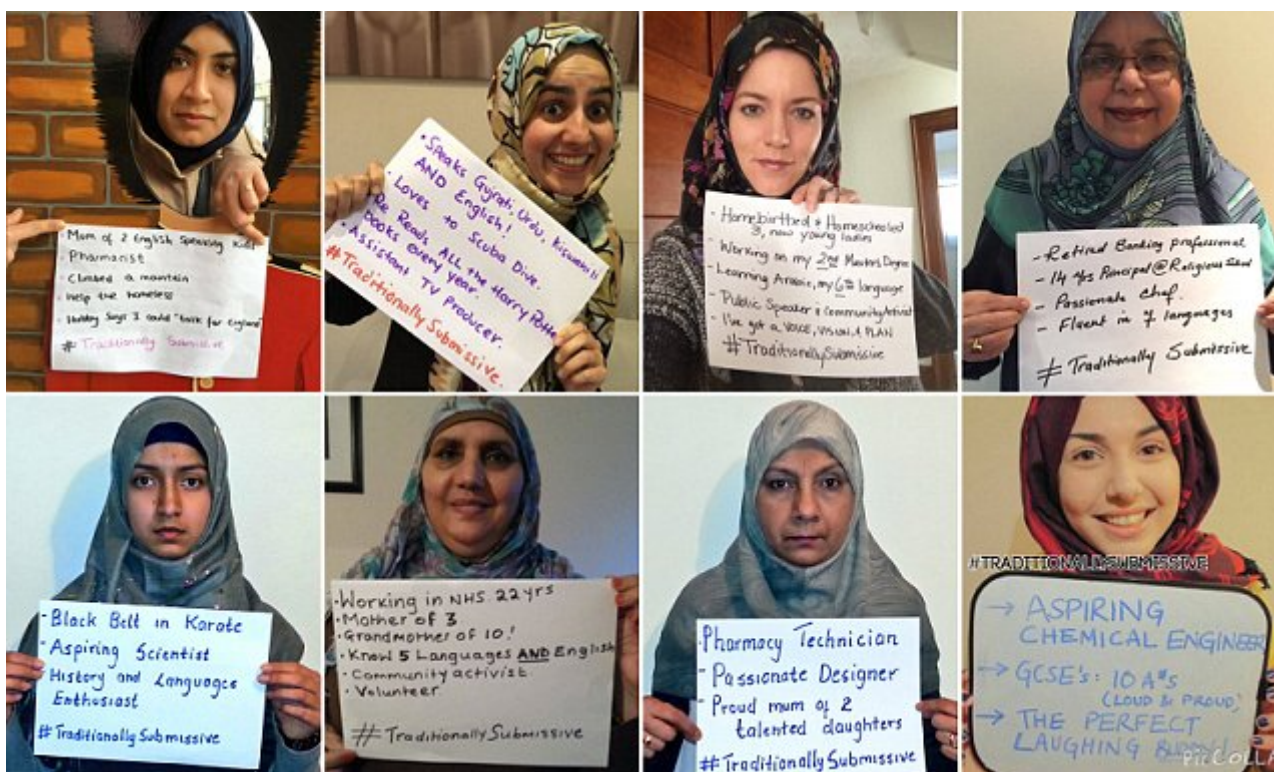 - Mum of 2 English Speaking Kids
- Pharmacist
- Climbed a mountain
- Help the homeless
- Hubby Says I could "talk for England"
# Traditionally Submissive
• Speaks Gujrati, Urdu, Kiswahili
AND English!
• Loves to Scuba Dive.
• Re Reads ALL the Harry Potter
books every year.
• Assistant TV Producer.
#Traditionally Submissive.
- Homebirthed & Homeschooled
3, now young ladies
- Working on my 2nd Masters Degree
- Learning Arabic, my 6th language
- Public Speaker & Community Activist
- I've got a VOICE, VISION & PLAN
#TraditionallySubmissive
- Retired Banking professional
- 14 yrs Principal @ Religious
- Passionate Chef.
- Fluent in 7 languages
# Traditionally Submissive
- Black Belt in Karate
- Aspiring Scientist
- History and Languages
Enthusiast
# Traditionally Submissive
• Working in NHS 22yrs
• Mother of 3
• Grandmother of 10!
• Know 5 Languages AND English
• Community activist.
• Volunteer
# TraditionallySubmissive
- Pharmacy Technician
- Passionate Designer
- Proud mum of 2
talented daughters
# Traditionally Submissive
#TRADITIONALLYSUBMISSIVE
→ ASPIRING
CHEMICAL ENGINEER
→ GCSE's: 10 A*s
(LOUD & PROUD)
→ THE PERFECT
LAUGHING